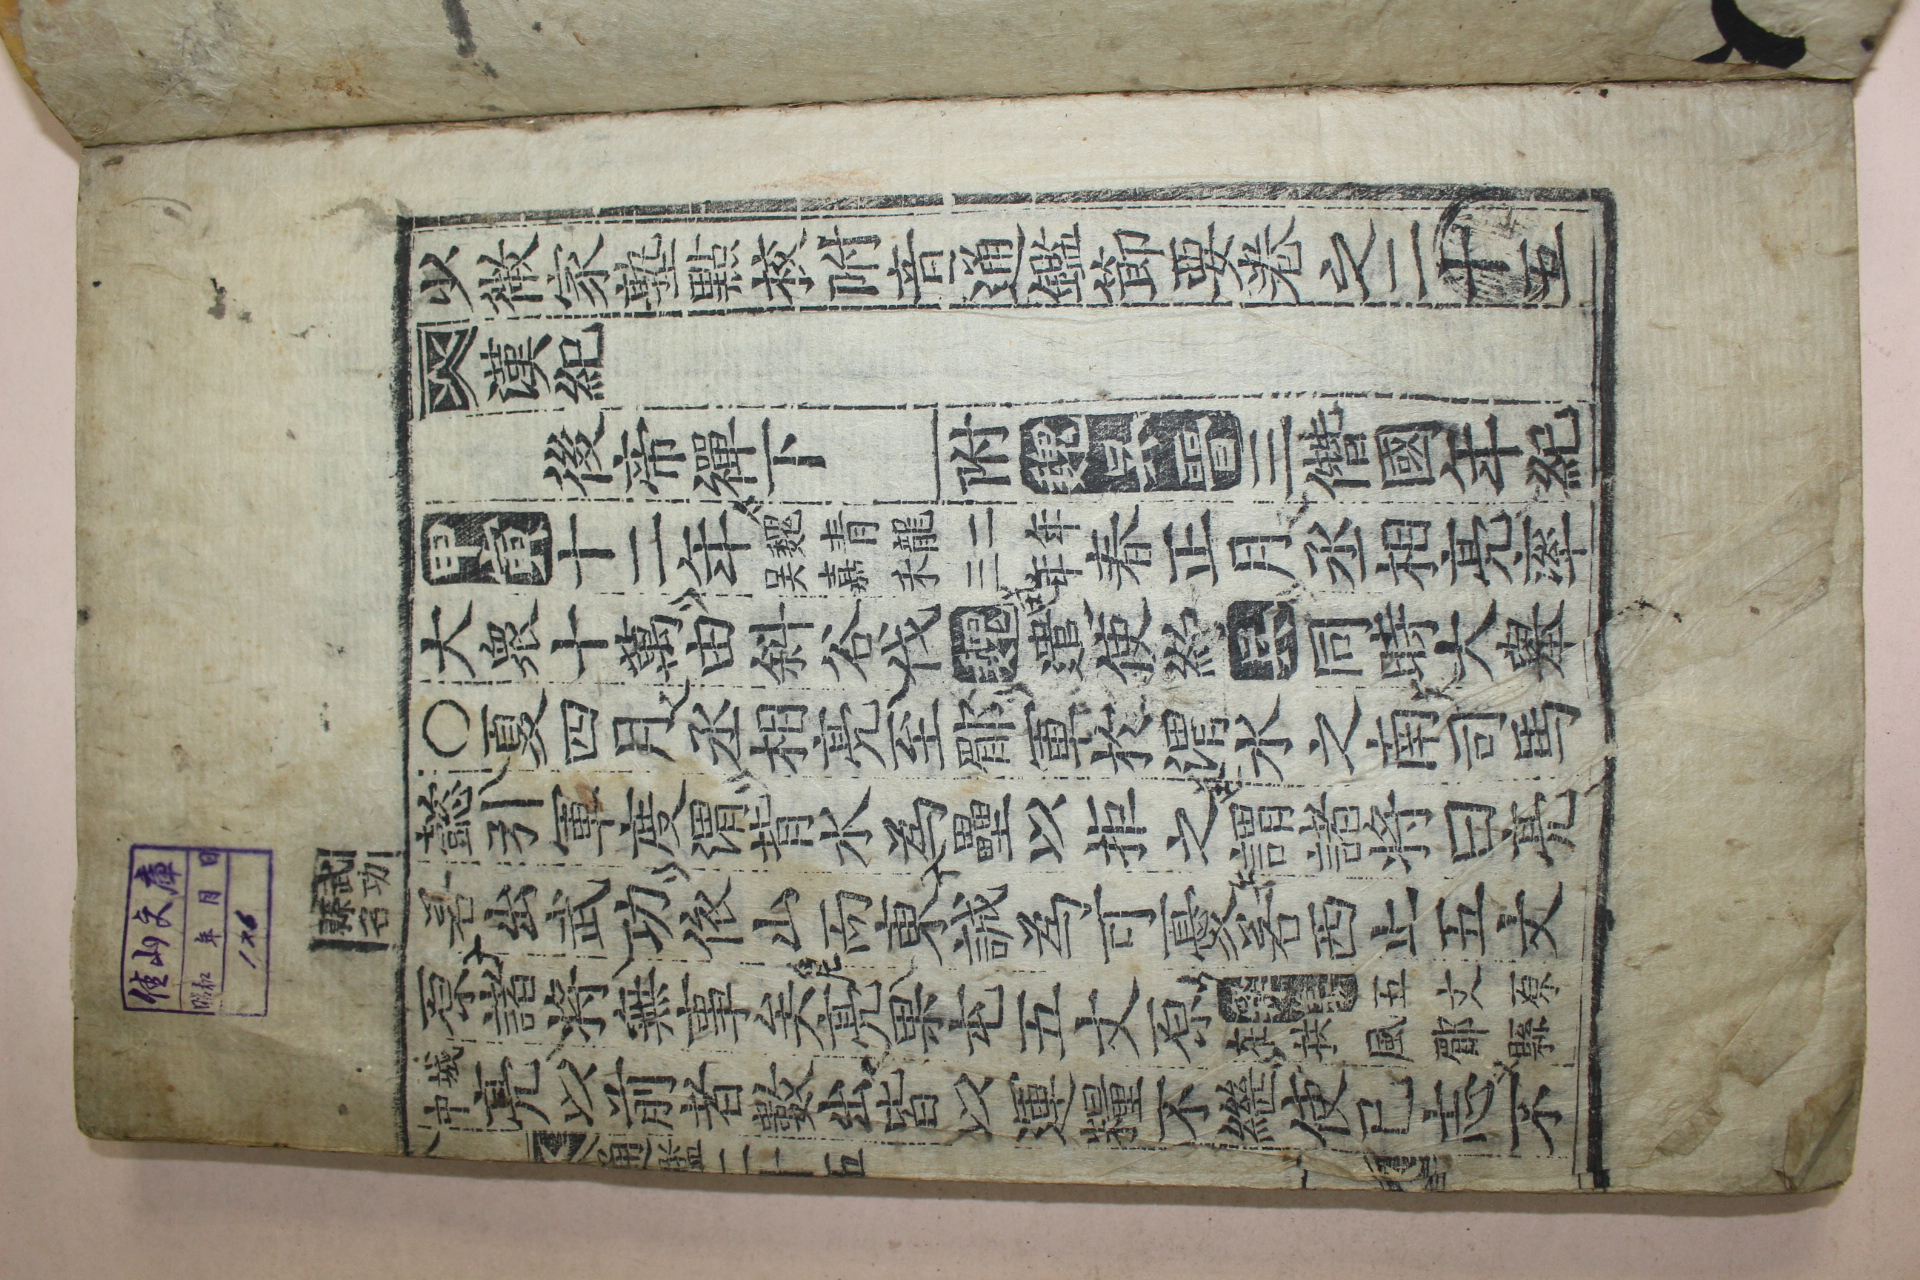 佳山文庫
昭和 年 月 日
126
武功
縣名
少微家塾點校附音通鑑節要卷之二十五
漢紀
後帝禪下 附魏吳晉三僭國年紀
甲寅十二年魏青龍二年吳嘉禾三年春正月丞相亮率
大衆十萬由斜谷伐魏遣使約吳同時大擧
○夏四月丞相亮至郿軍於渭水之南司馬
懿引軍度渭背水為壘以拒之謂諸將曰亮
若出武功依山而東誠為可憂若西止五丈
原諸將無事矣亮果屯五丈原五丈原在扶風郿縣
城中亮以前者數出皆以運糧不繼使已志不
通鑑二十五